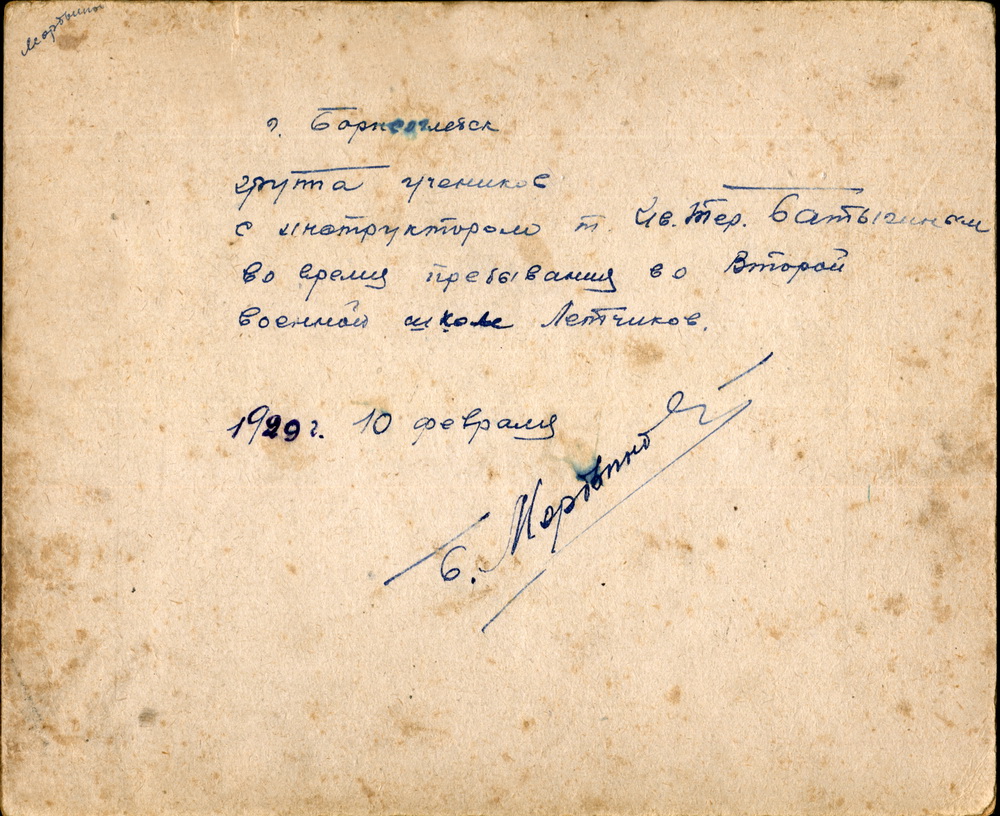 Мордвинъ
г. Борисоглебск
группа учеников
с инструктором т. Ив. Тер. Батыгиным
во время пребывания во Второй
военной школе Летчиков.
1929 г. 10 февраля
Б. Мордвинъ